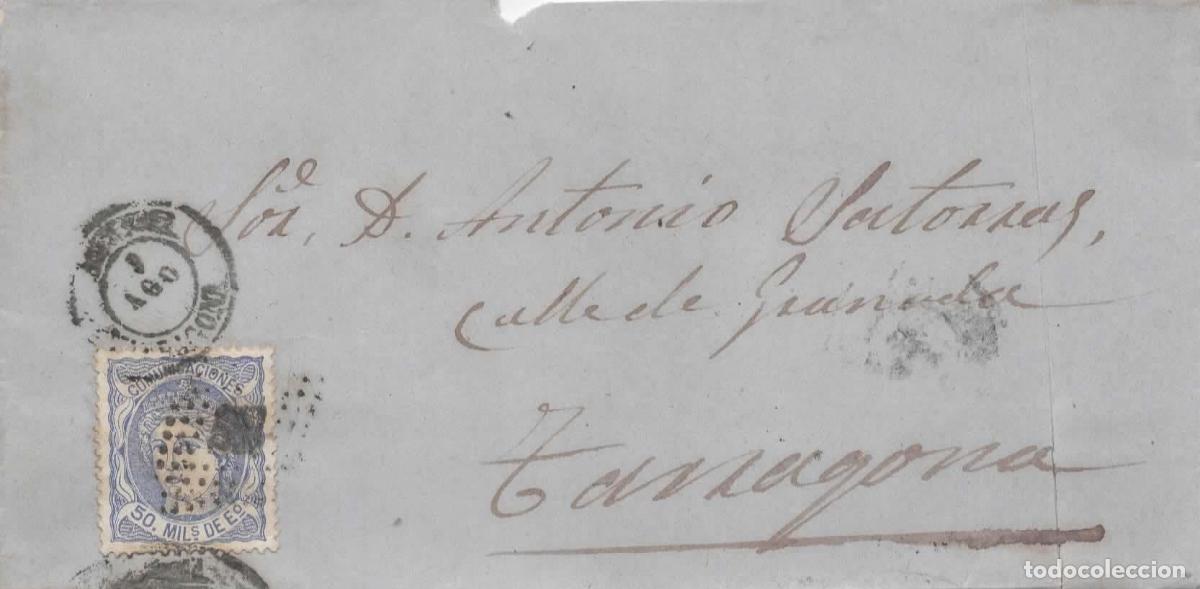 Sor. D. Antonio Satorras,
Calle de Granada
Tarragona
9
AGO
COMUNICACIONES
50. MILS. DE Eo.
todocoleccion